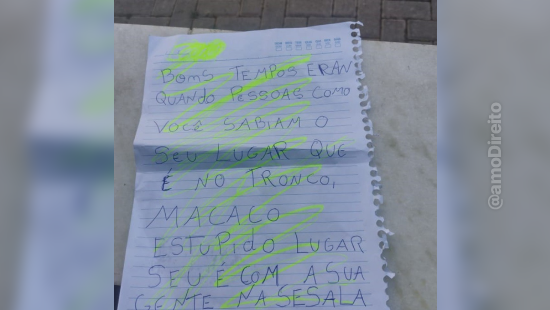 BONS TEMPOS ERAN
QUANDO PESSOAS COMO
VOCÊ SABIAM O
SEU LUGAR QUE
É NO TRONCO,
MACACO
ESTUPIDO LUGAR
SEU É COM A SUA
GENTE NA SESALA
@amoDireito